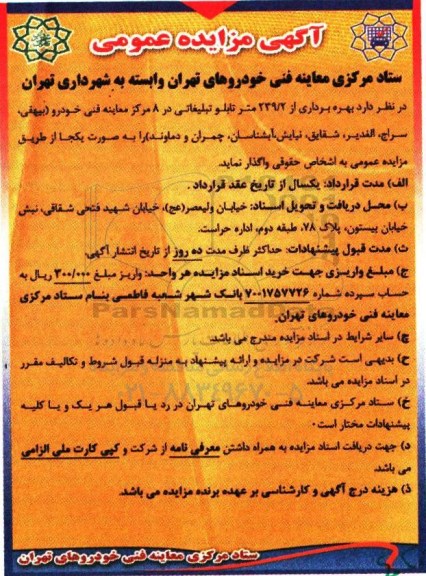 آگهی مزایده عمومی
ستاد مرکزی معاینه فنی خودروهای تهران وابسته به شهرداری تهران
در نظر دارد بهره برداری از ۲۳۹/۲ متر تابلو تبلیغاتی در ۸ مرکز معاینه فنی خودرو (بیهقی،
سراج، الغدیر، شقایق، نیایش،آبشناسان، چمران و دماوند)را به صورت یکجا از طریق
مزایده عمومی به اشخاص حقوقی واگذار نماید.
الف) مدت قرارداد: یکسال از تاریخ عقد قرارداد .
ب) محل دریافت و تحویل اسناد: خیابان ولیعصر(عج)، خیابان شهید فتحی شقاقی، نبش
خیابان بیستون، پلاک ۷۸، طبقه دوم، اداره حراست.
ث) مدت قبول پیشنهادات: حداکثر ظرف مدت ده روز از تاریخ انتشار آگهی.
ج) مبلغ واریزی جهت خرید اسناد مزایده هر واحد: واریز مبلغ ۳۰۰/۰۰۰ ریال به
حساب سپرده شماره ۷۰۰۱۷۵۷۷۲۶ بانک شهر شعبه فاطمی بنام ستاد مرکزی
معاینه فنی خودروهای تهران.
چ) سایر شرایط در اسناد مزایده مندرج می باشد.
ح) بدیهی است شرکت در مزایده و ارائه پیشنهاد به منزله قبول شروط و تکالیف مقرر
در اسناد مزایده می باشد.
خ) ستاد مرکزی معاینه فنی خودروهای تهران در رد یا قبول هر یک و یا کلیه
پیشنهادات مختار است .
د) جهت دریافت اسناد مزایده به همراه داشتن معرفی نامه از شرکت و کپی کارت ملی الزامی
می باشد.
ذ) هزینه درج آگهی و کارشناسی بر عهده برنده مزایده می باشد.
ستاد مرکزی معاینه فنی خودروهای تهران